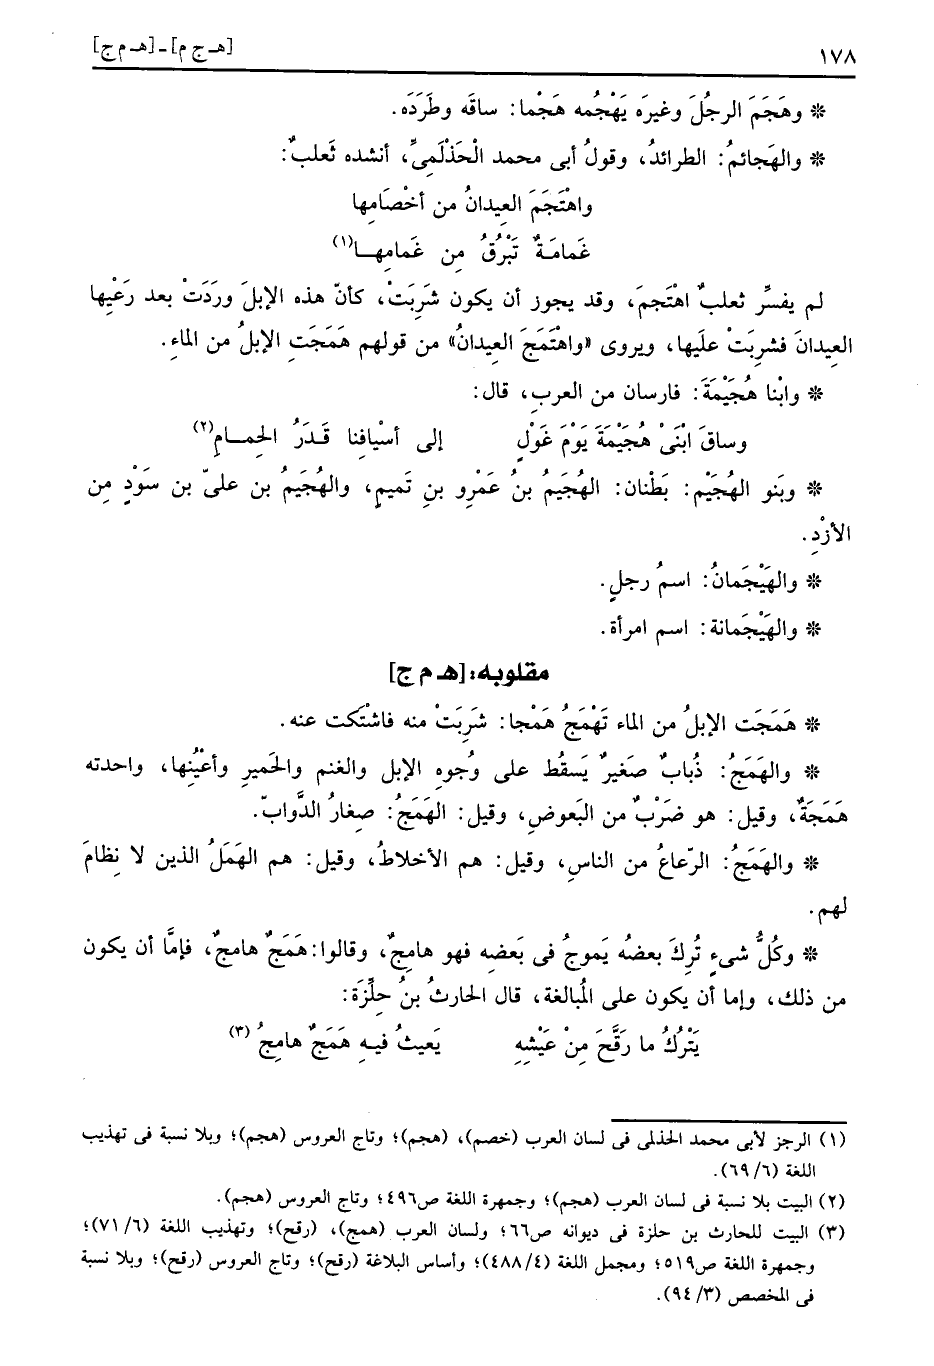 ١٧٨ [هـ ج م] ـ [هـ م ج]
* وهَجَمَ الرجُلَ وغيرَه يَهْجُمه هَجْما: ساقَه وطَرَدَه.
* والهَجائمُ: الطرائدُ، وقولُ أبى محمد الْحَذْلَمِىِّ، أنشده ثَعلبٌ:
واهْتَجَمَ العِيدانُ من أخْصَامِها
غَمامَةٌ تَبْرُقُ مِن غَمامِهـا(١)
لم يفسِّر ثعلبٌ اهْتَجمَ، وقد يجوز أن يكون شَرِبَتْ، كأنّ هذه الإبلَ ورَدَتْ بعد رَعْيِها
العِيدانَ فشرِبَتْ علَيها، ويروى «واهْتَمَجَ العِيدانُ» من قولهم هَمَجَتِ الإبلُ من الماءِ.
* وابْنا هُجَيْمَةَ: فارسان من العربِ، قال:
وساقَ ابْنَىْ هُجَيمةَ يَوْمَ غَوْلٍ إلى أسْيافِنا قَـدَرُ الحِمـامِ(٢)
* وبَنو الهُجَيْمِ: بَطْنان: الهُجَيمُ بنُ عَمْرِو بنِ تَميمٍ، والهُجَيمُ بن علىّ بن سَوْدٍ مِن
الأزْدِ.
* والهَيْجَمانُ: اسمُ رجلٍ.
* والهَيْجَمانة: اسم امرأة.
مقلوبه: [هـ م ج]
* هَمَجَت الإبلُ من الماء تَهْمَجُ هَمْجا: شَرِبَتْ منه فاشْتَكت عنه.
* والهَمَجُ: ذُبابٌ صَغيرٌ يَسقُط على وُجوهِ الإبل والغنم والحَميرِ وأعْيُنِها، واحدته
هَمَجَةٌ، وقيل: هو ضَرْبٌ من البَعوضِ، وقيل: الهَمَجُ: صِغارُ الدَّوابّ.
* والهَمَجُ: الرّعاعُ من الناسِ، وقيل: هم الأخلاطُ، وقيل: هم الهَمَلُ الذين لا نِظامَ
لهم.
* وكُلُّ شىءٍ تُركَ بعضُه يَموجُ فى بَعضِه فهو هامجٌ، وقالوا: هَمَجٌ هامجٌ، فإمَّا أن يكون
من ذلك، وإما أن يكون على المُبالغة، قال الحارثُ بنُ حلِّزَةَ:
يَتْرُكُ ما رَقَّحَ مِنْ عَيْشِهِ يَعيثُ فيـهِ هَمَجٌ هامِجُ (٣)
(١) الرجز لأبى محمد الحذلمى فى لسان العرب (خصم)، (هجم)؛ وتاج العروس (هجم)؛ وبلا نسبة فى تهذيب
اللغة (٦/ ٦٩).
(٢) البيت بلا نسبة فى لسان العرب (هجم)؛ وجمهرة اللغة ص٤٩٦؛ وتاج العروس (هجم).
(٣) البيت للحارث بن حلزة فى ديوانه ص٦٦؛ ولسان العرب (همج)، (رقح)؛ وتهذيب اللغة (٦/ ٧١)؛
وجمهرة اللغة ص٥١٩؛ ومجمل اللغة (٤/ ٤٨٨)؛ وأساس البلاغة (رقح)؛ وتاج العروس (رقح)؛ وبلا نسبة
فى المخصص (٣/ ٩٤).